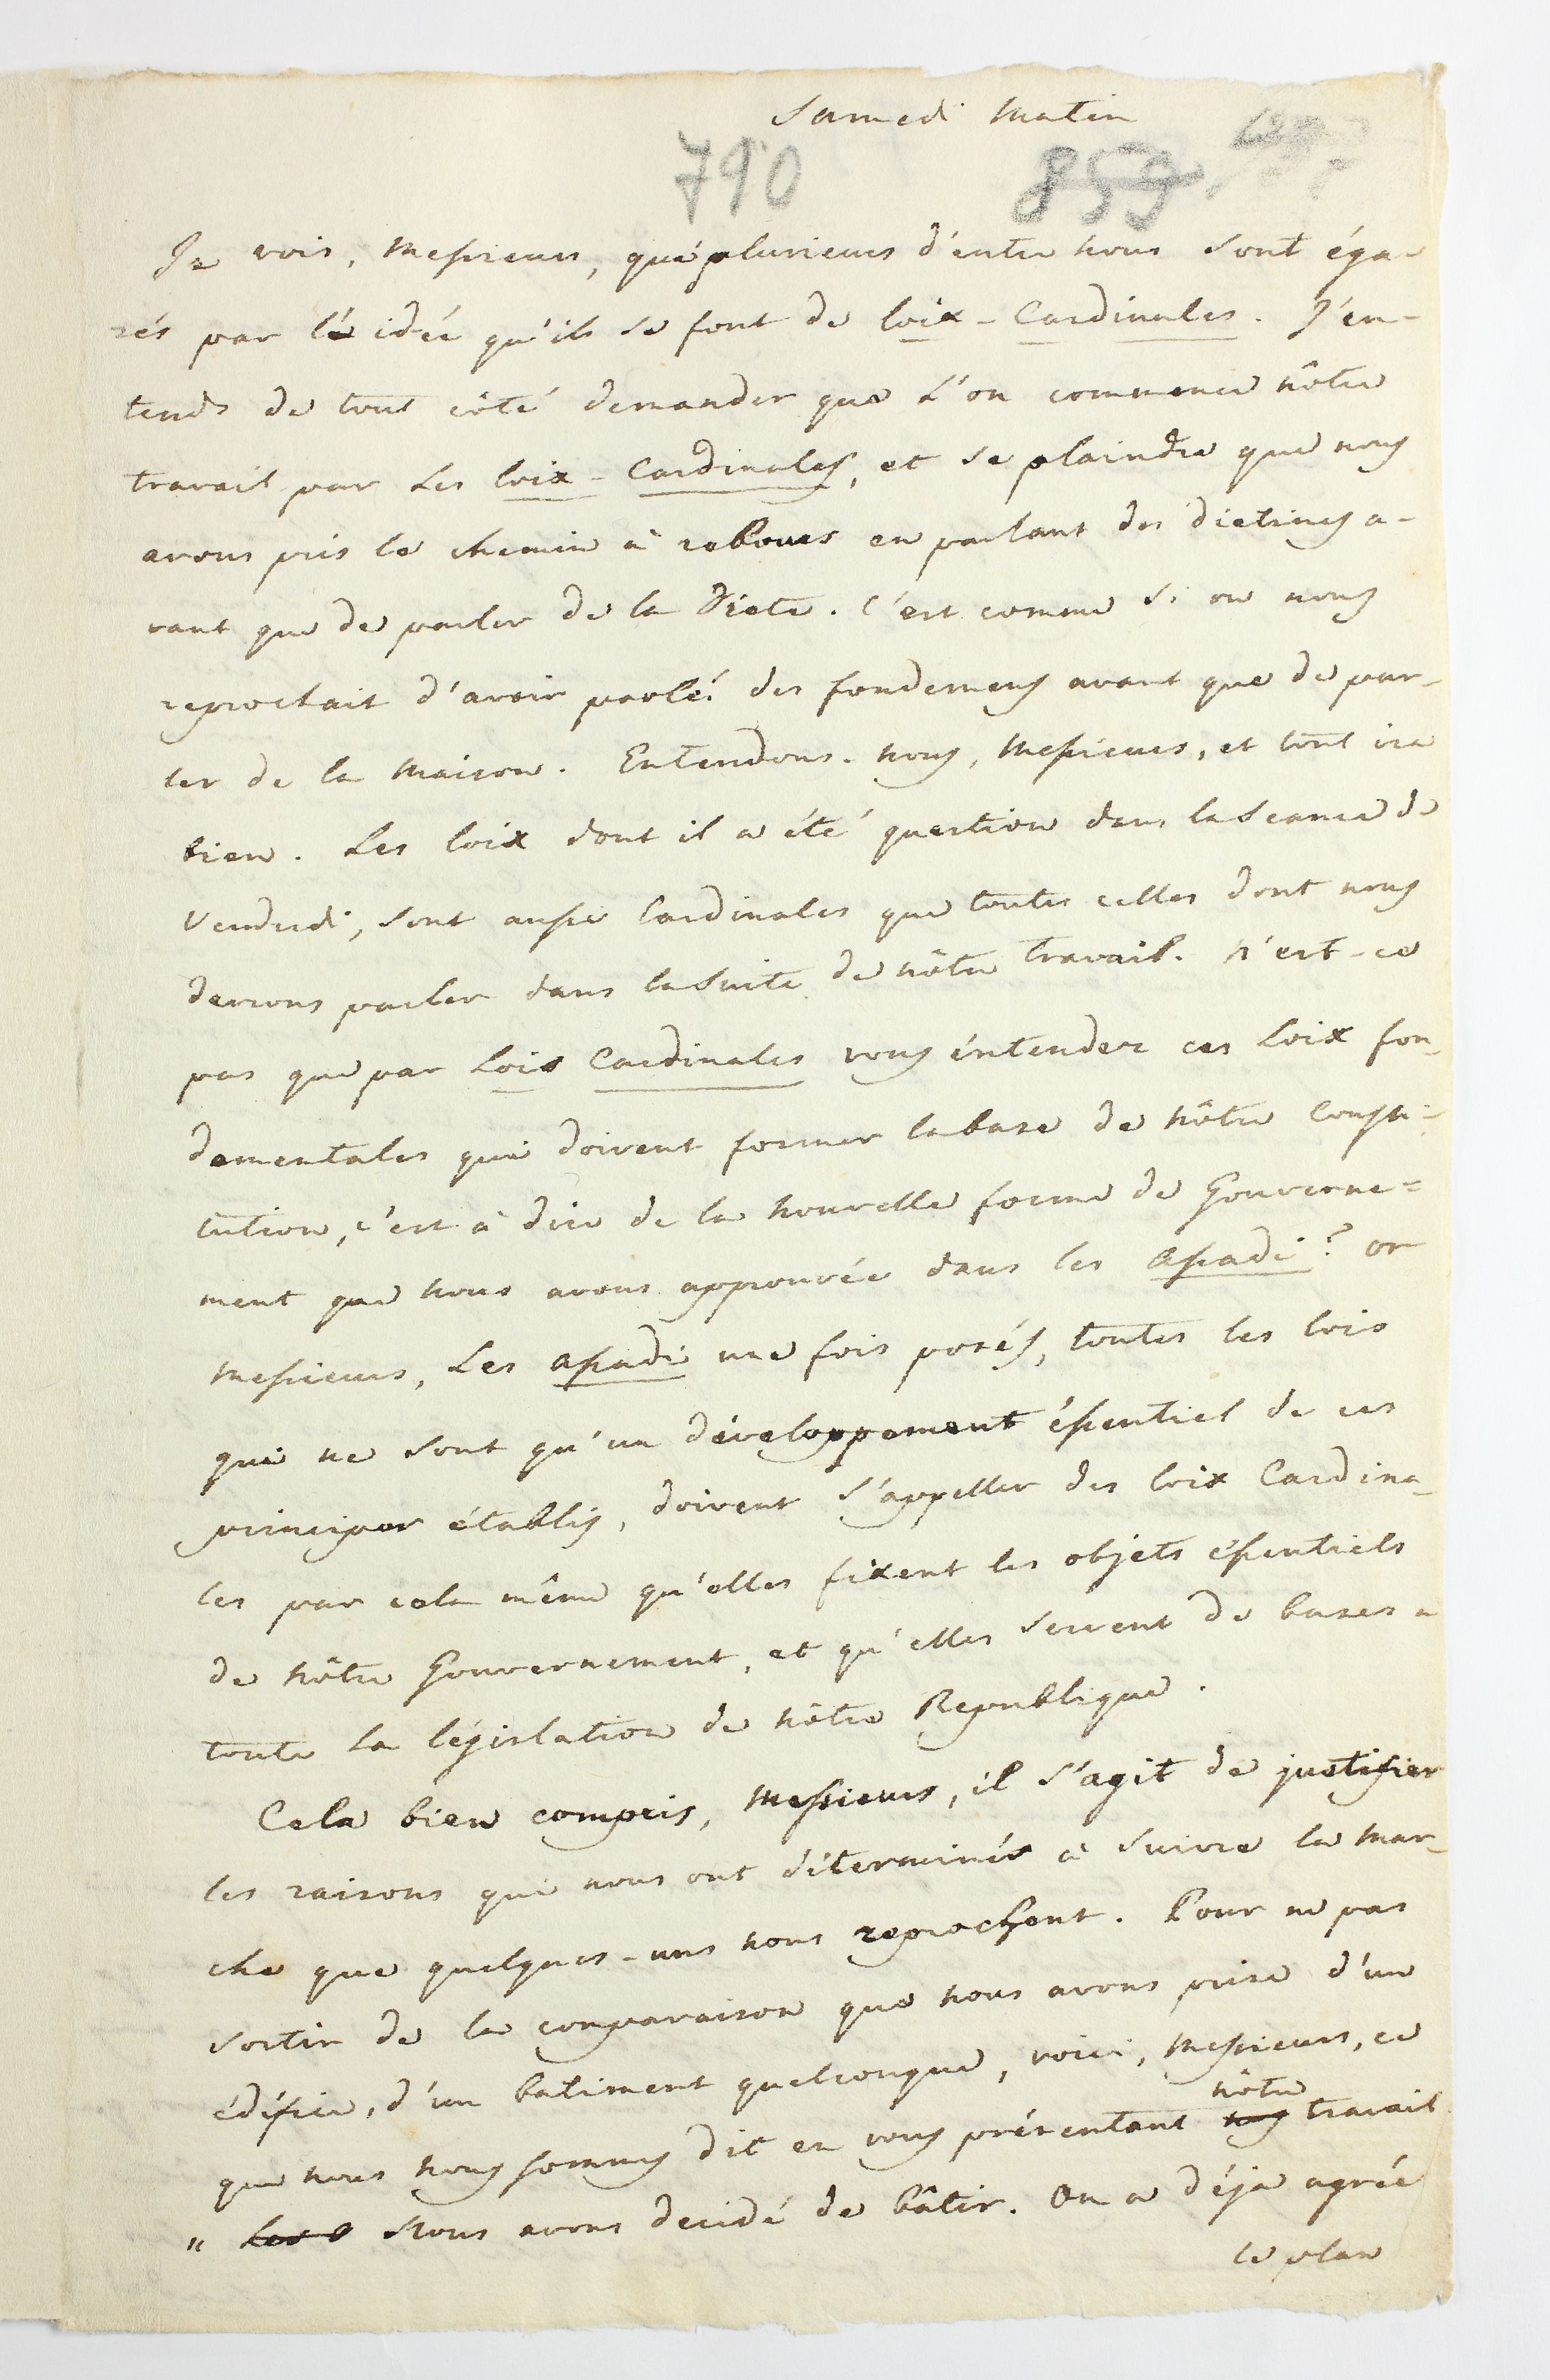 Samedi matin
790 859
Je vois, Messieurs, que plusieurs d'entre nous sont éga-
rés par l'idée qu'ils se font de loix-Cardinales. J'en-
tends de tout côté demander que l'on commence nôtre
travail par les loix-Cardinales, et se plaindre que nous
avons pris le chemin à rebours en parlant des dietines a-
vant que de parler de la Diete. C'est comme si on nous
reprochait d'avoir parlé des fondemens avant que de par-
ler de la maison. Entendons-nous, Messieurs, et tout ira
bien. Les loix dont il a été question dans la Seance de
Vendredi, sont aussi Cardinales que toutes celles dont nous
devrons parler dans la suite de nôtre travail. N'est-ce
pas que par Loix Cardinales vous éntendez ces Loix fon-
damentales qui doivent former la base de nôtre Consti-
tution, c'est à dire de la nouvelle forme de Gouverne=
ment que nous avons approuvée dans les Assadi? or
Messieurs, Les Assadi une fois posés, toutes les loix
qui ne sont qu'un développement éssentiel de ces
principes établis, doivent s'appeller des loix Cardina-
les par cela même qu'elles fixent les objets éssentiels
de nôtre Gouvernement, et qu'elles servent de bases a
toute la législation de nôtre Republique.
Cela bien compris, Messieurs, il s'agit de justifier
les raisons qui nous ont déterminés à suivre la mar-
che que quelques-uns nous reprochent. Pour ne pas
sortir de la comparaison que nous avons prise d'un
édifice, d'un batiment quelconque, voici, Messieurs, ce
nôtre
que nous nous sommes dit en vous présentant nos travail
" Les Nous avons decidé de bâtir. On a déja agrée
le plan